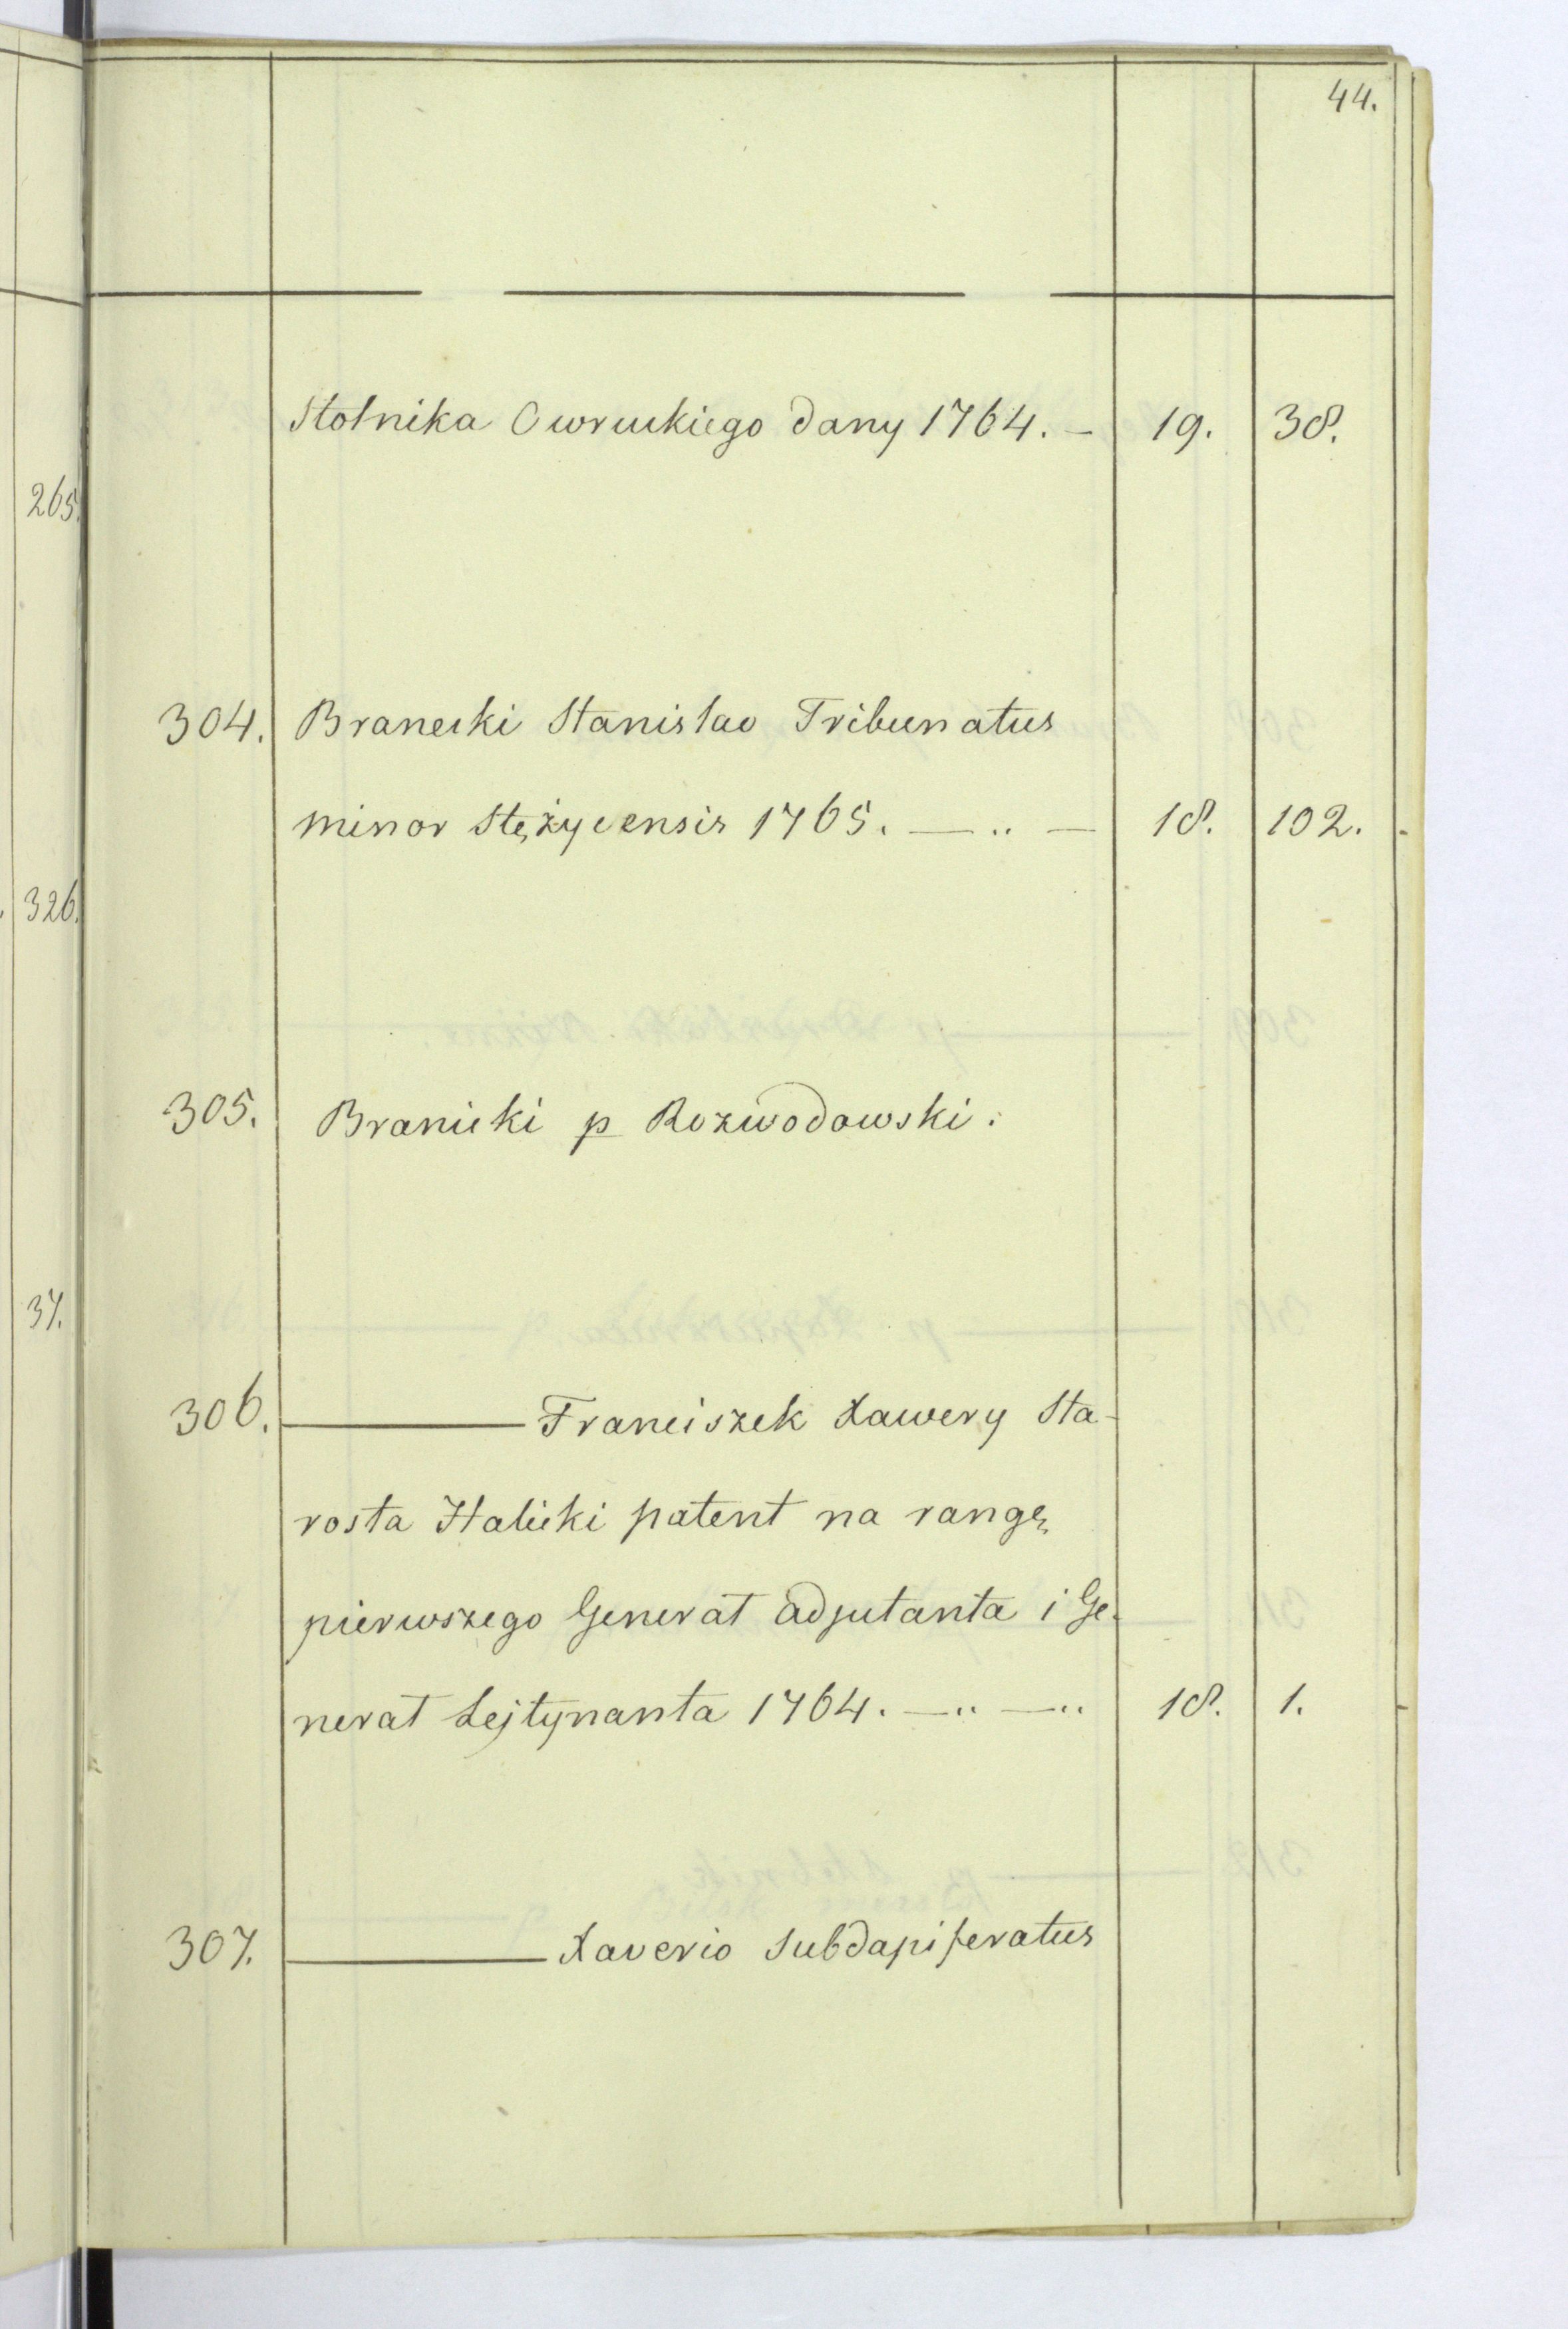 44.
Stolnika Owruckiego dany 1764. — 19. 38.
265.
304. Branecki Stanislao Tribunatus
minor Stężycensis 1765. — .. — 18. 102.
326.
305. Branicki p Rozwodowski.
37.
306. ——— Franciszek Xawery Sta-
rosta Halicki patent na rangę
pierwszego Generał adjutanta i Ge-
nerał Lejtynanta 1764. —.. —.. 18. 1.
307. ——— Xaverio Subdapiferatus